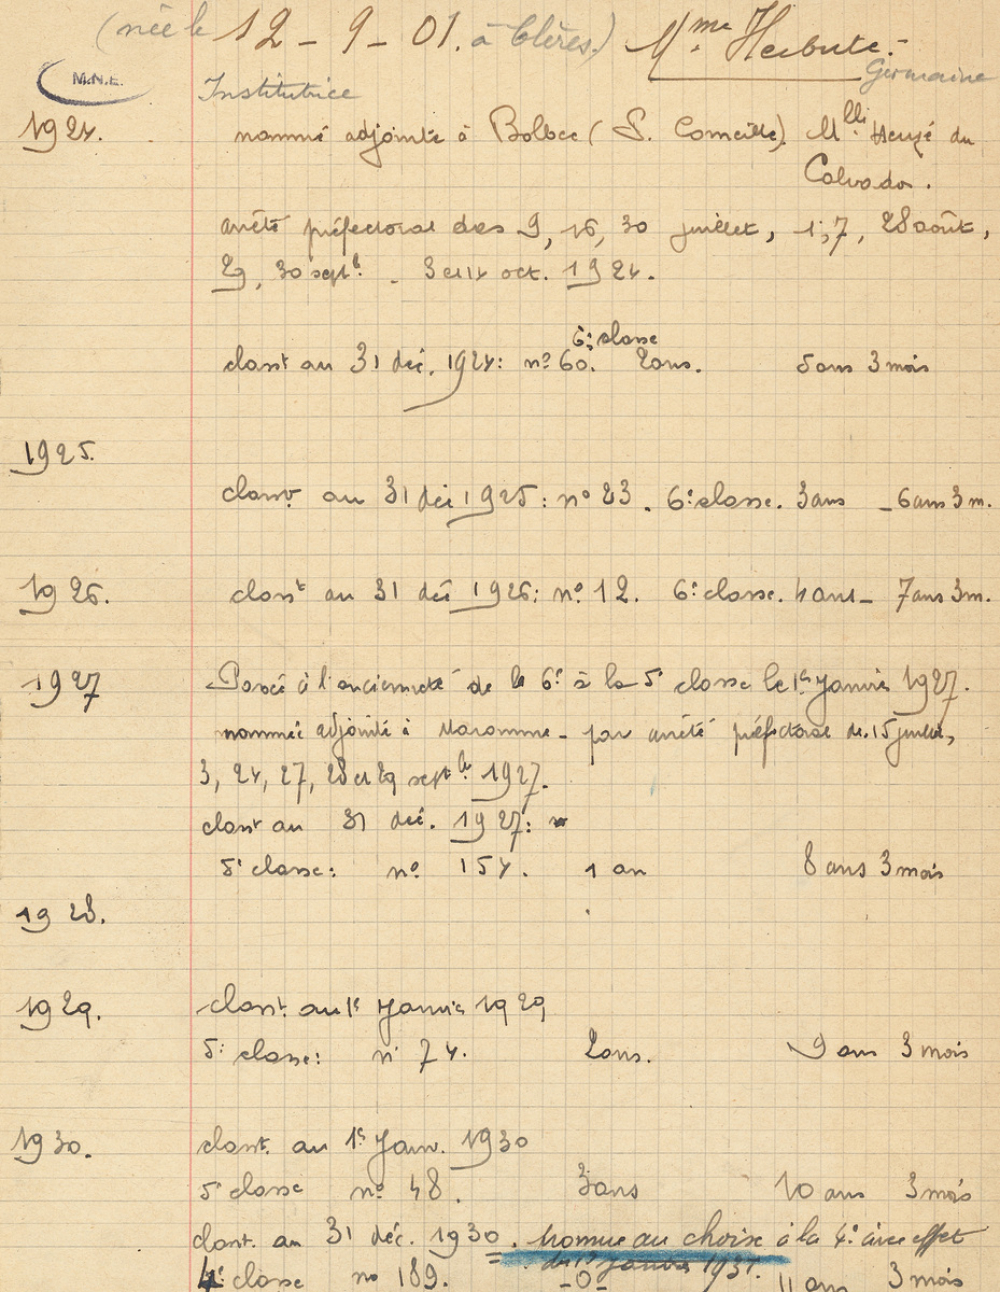 (née le 12-9-01. à Clères.) Mme Herbute.-
Germaine
M.N.E.
Institutrice
1924. nommé adjointe à Bolbec (P. Corneille) Mlle du
Calvados.
arrêté préfectoral des 9, 16, 30 juillet, 1, 7, 28 août,
29, 30 sept. - 3 et 14 oct. 1924.
6e classe
clast au 31 déc. 1924: no 60. 2 ans. 5 ans 3 mois
1925.
clast au 31 déc 1925: no 23. 6e classe. 3 ans - 6 ans 3 m.
1926. clast au 31 déc 1926: no 12. 6e classe. 4 ans - 7 ans 3 m.
1927 Passée à l'ancienneté de la 6e à la 5e classe le 1er Janvier 1927.
nommée adjointe à Maromme - par arrêté préfectoral du 15 juillet,
3, 24, 27, 28 et 29 septbre 1927.
clast au 31 déc. 1927:
5e classe: no 154. 1 an 8 ans 3 mois
1928.
1929. clast. au 1er Janvier 1929
5e classe: no 74. 2 ans. 9 ans 3 mois
1930. clast. au 1er Janv. 1930
5e classe no 48. 3 ans 10 ans 3 mois
clast. au 31 déc. 1930. promue au choix à la 4e avec effet
du 1er Janvier 1931.
4e classe no 189. -0- 11 ans 3 mois